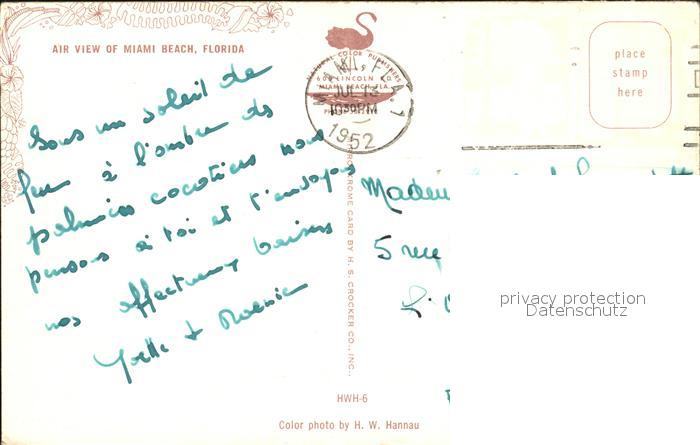 AIR VIEW OF MIAMI BEACH, FLORIDA
Sous un soleil de
feu à l'ombre des
palmiers cocotiers nous
pensons à toi et t'envoyons
nos affectueux baisers
Yvette +
NATURAL COLOR PUBLISHERS
605 LINCOLN RD
MIAMI BEACH, FLA.
MIAMI, FLA
JUL 13
1030PM
1952
place
stamp
here
Madem
5 rue
CROME CARD BY H. S. CROCKER CO., INC.,
HWH-6
Color photo by H. W. Hannau
privacy protection
Datenschutz